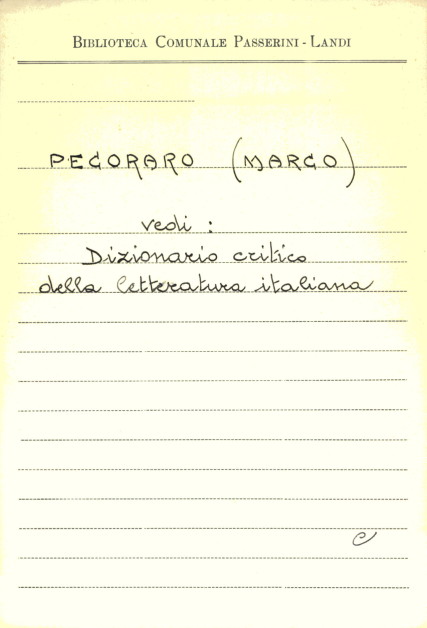 BIBLIOTECA COMUNALE PASSERINI - LANDI
PECORARO (MARCO)
vedi :
Dizionario critico
della letteratura italiana
C